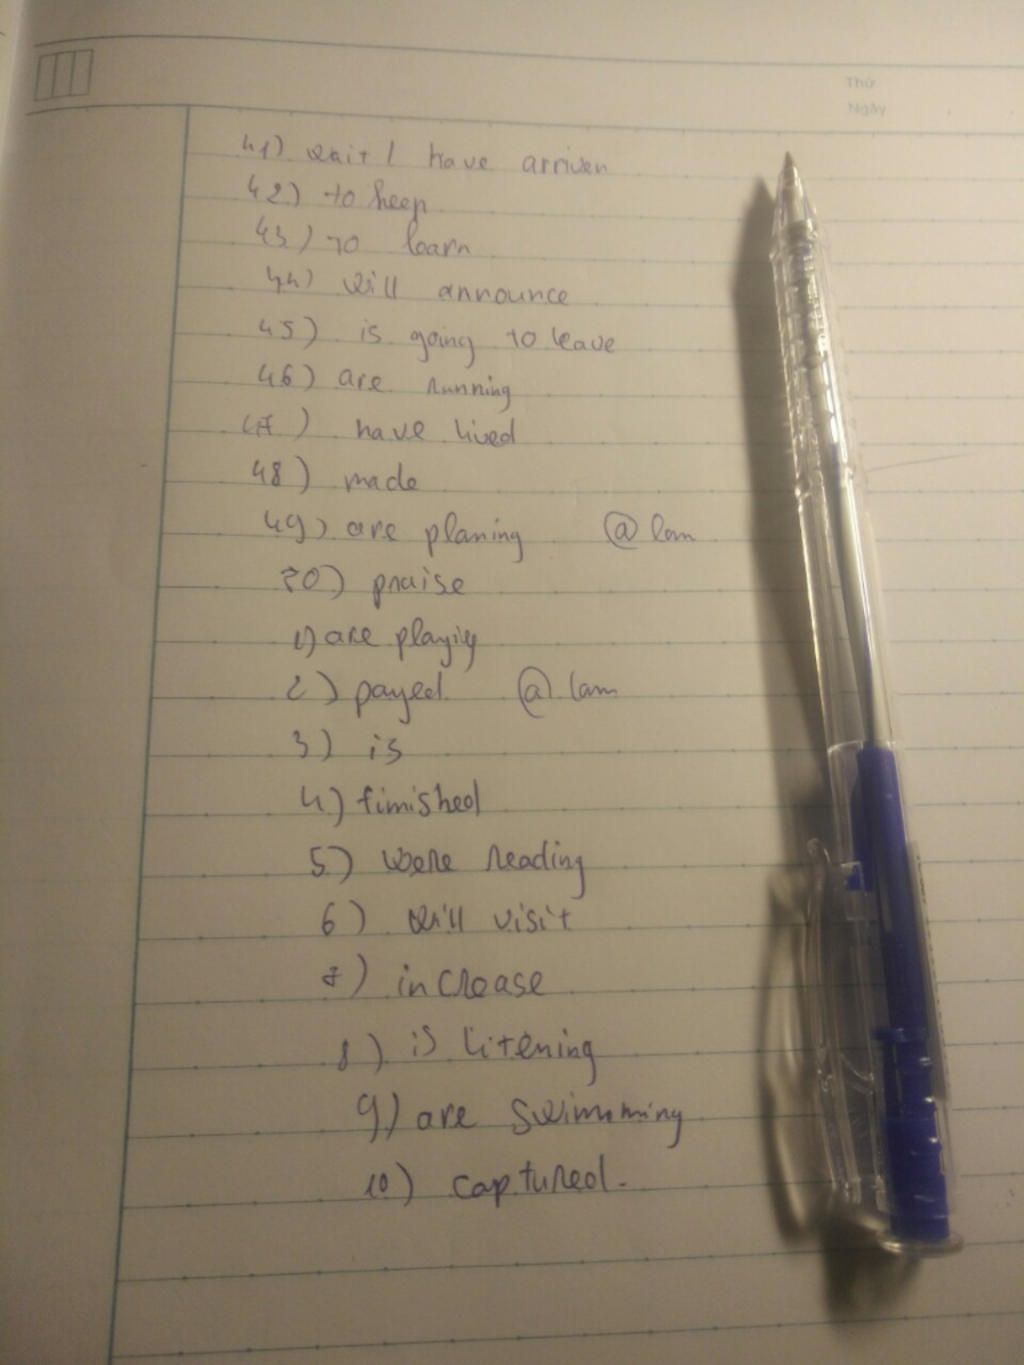 Thứ
Ngày
41) wait I have arriven
42) to keep
43) to learn
44) will announce
45) is going to leave
46) are running
47) have lived
48) made
49) are planing @ lam
50) praise
1) are playing
2) payed @ lam
3) is
4) finished
5) were reading
6) will visit
7) increase
8) is litening
9) are swimming
10) captured.